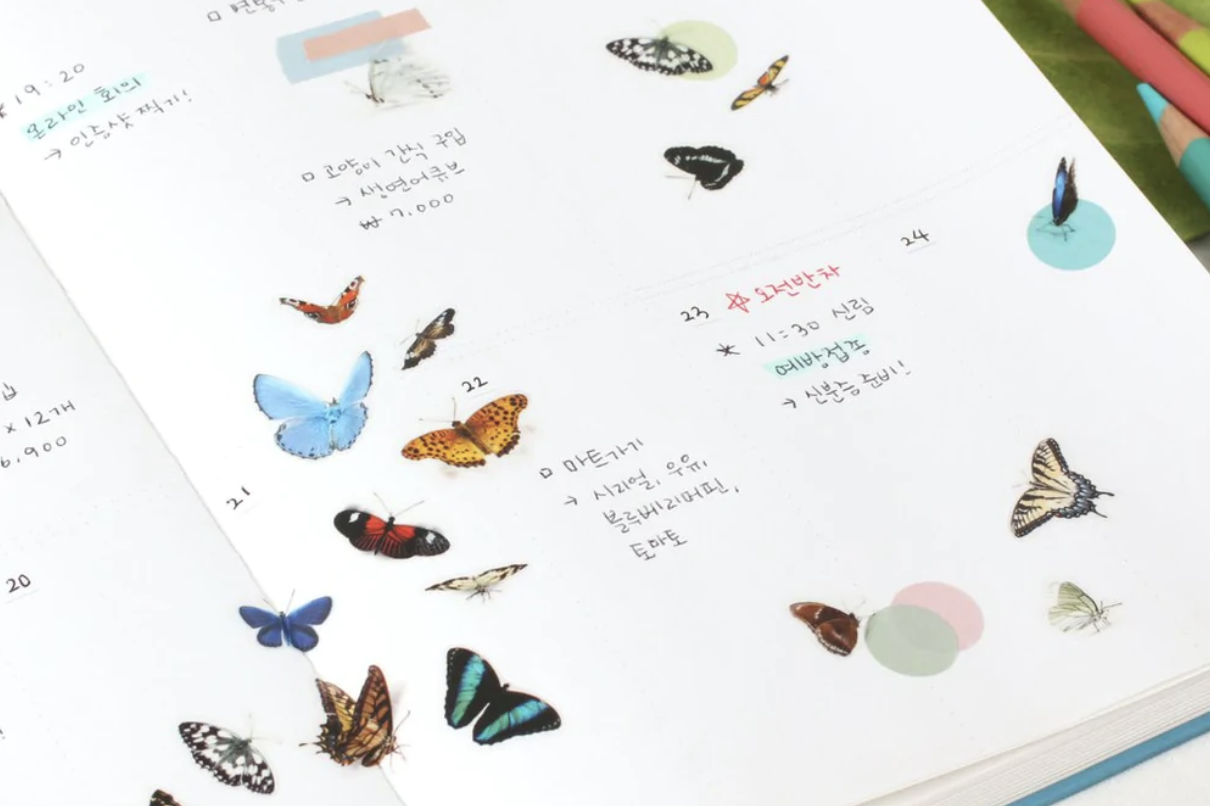 * 19:20
온라인 회의
→ 인증샷 찍기!
□ 고양이 간식 구입
→ 생연어큐브
₩ 7,000
x 12개
6,900
20
21
22
□ 마트가기
→ 시리얼, 우유,
블루베리머핀,
토마토
23 ☆ 오전반차
* 11:30 신림
예방접종
→ 신분증 준비!
24